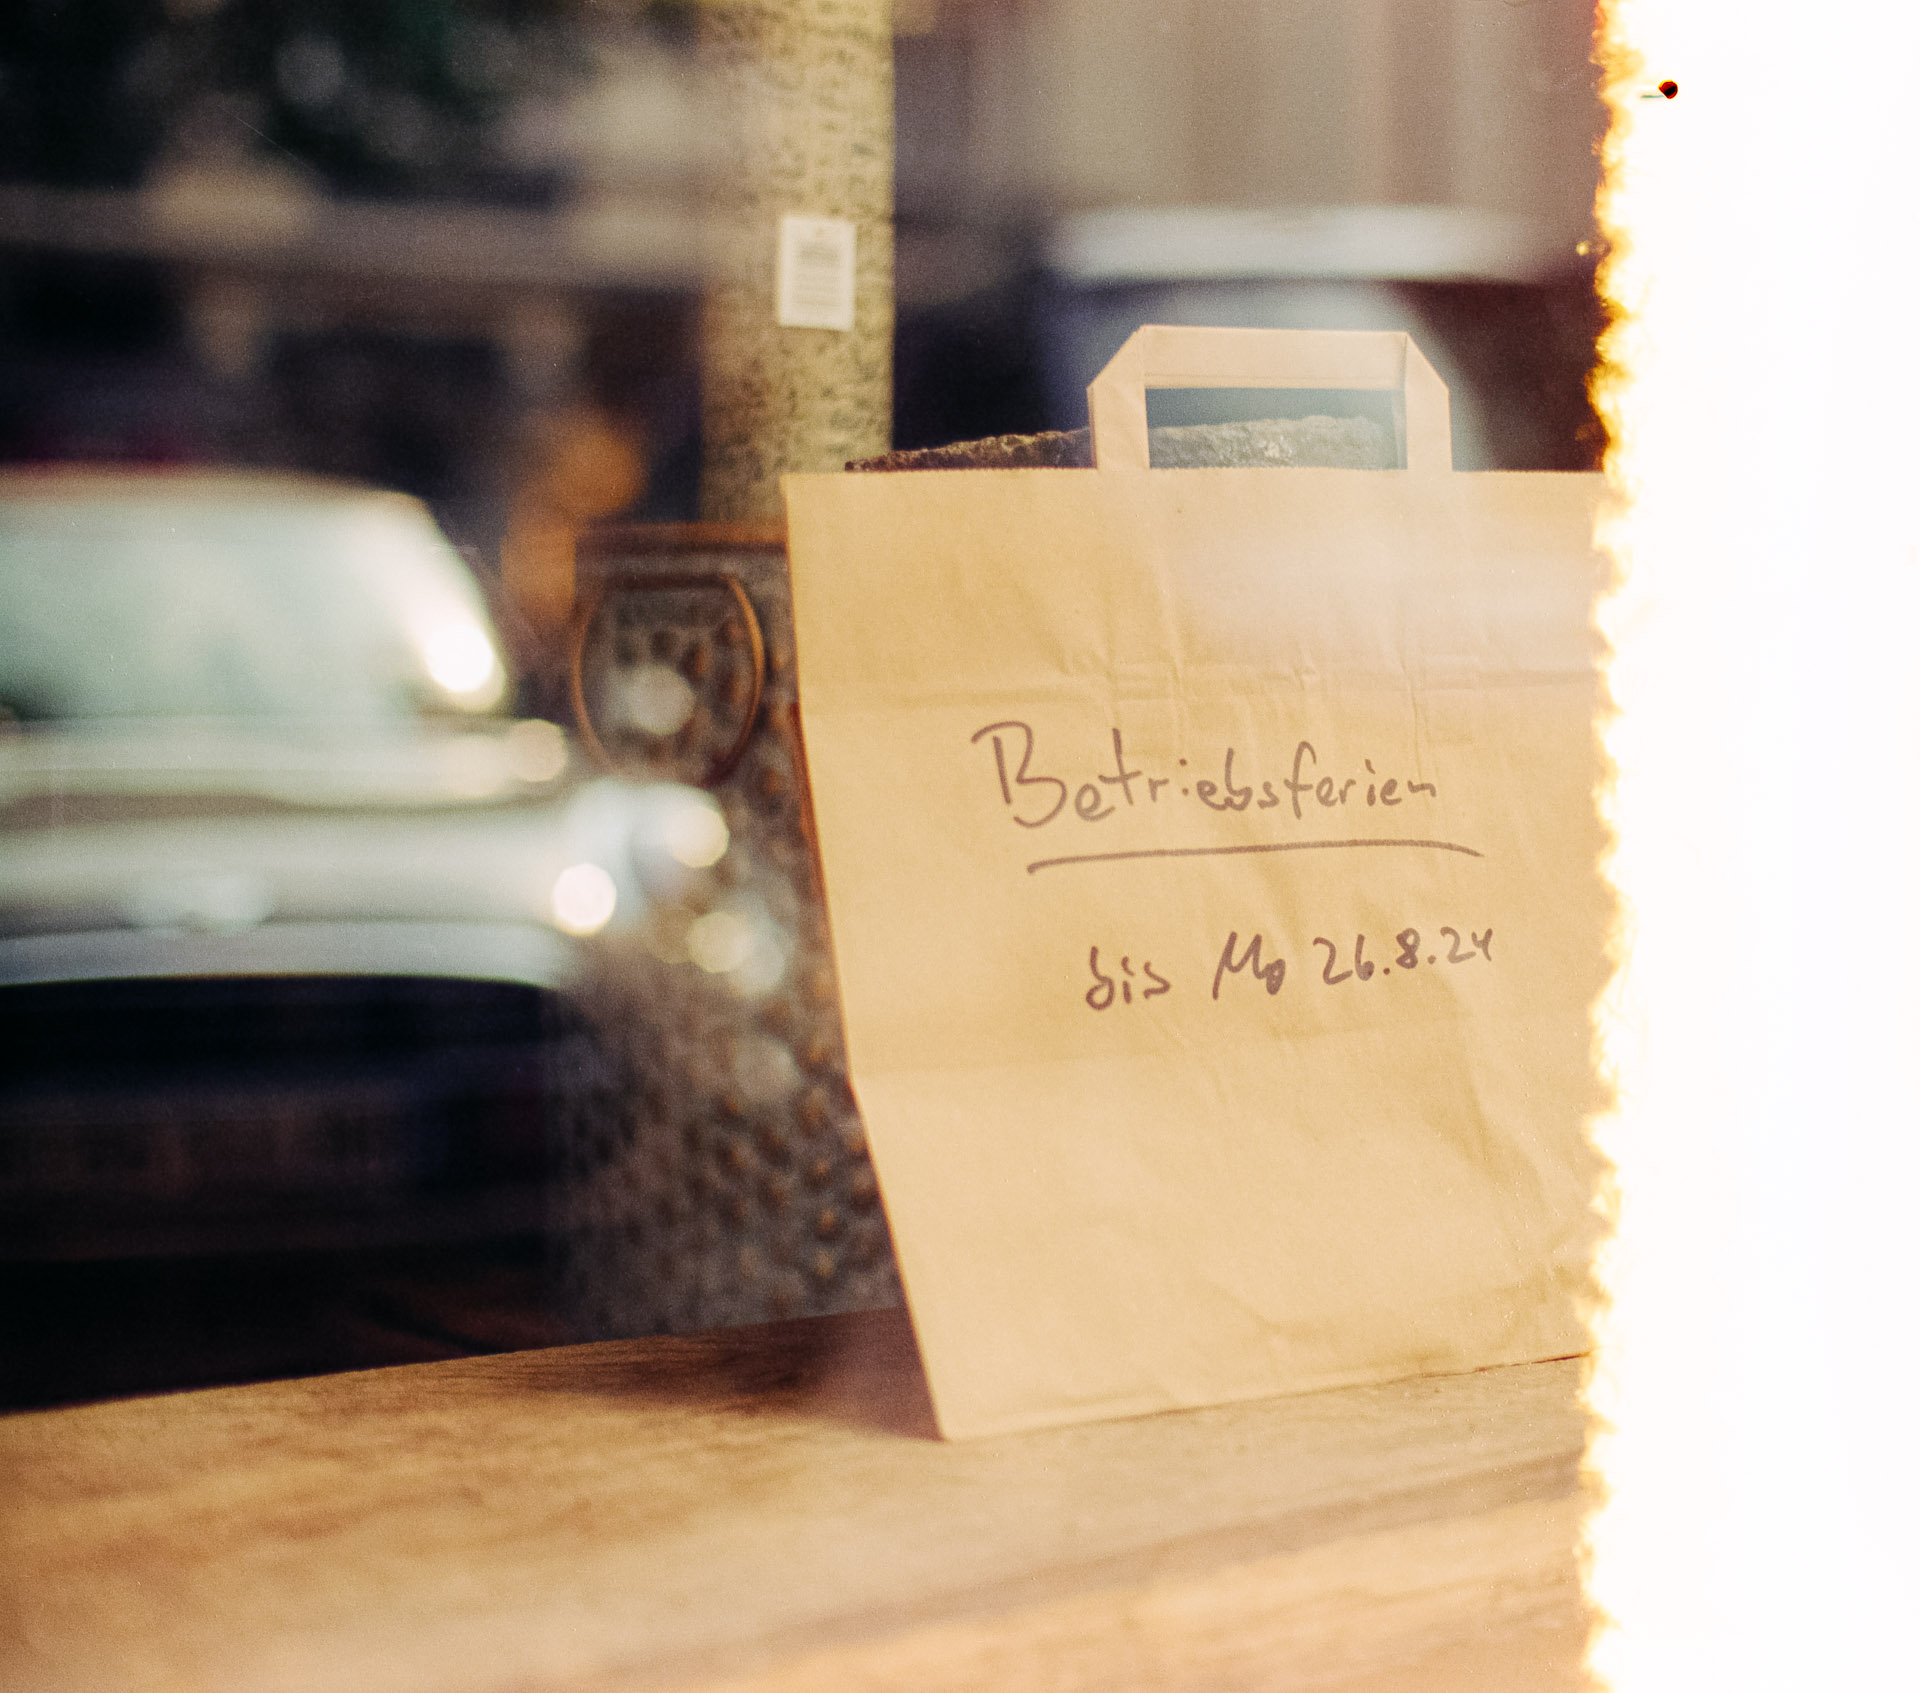 Betriebsferien
bis Mo 26.8.24